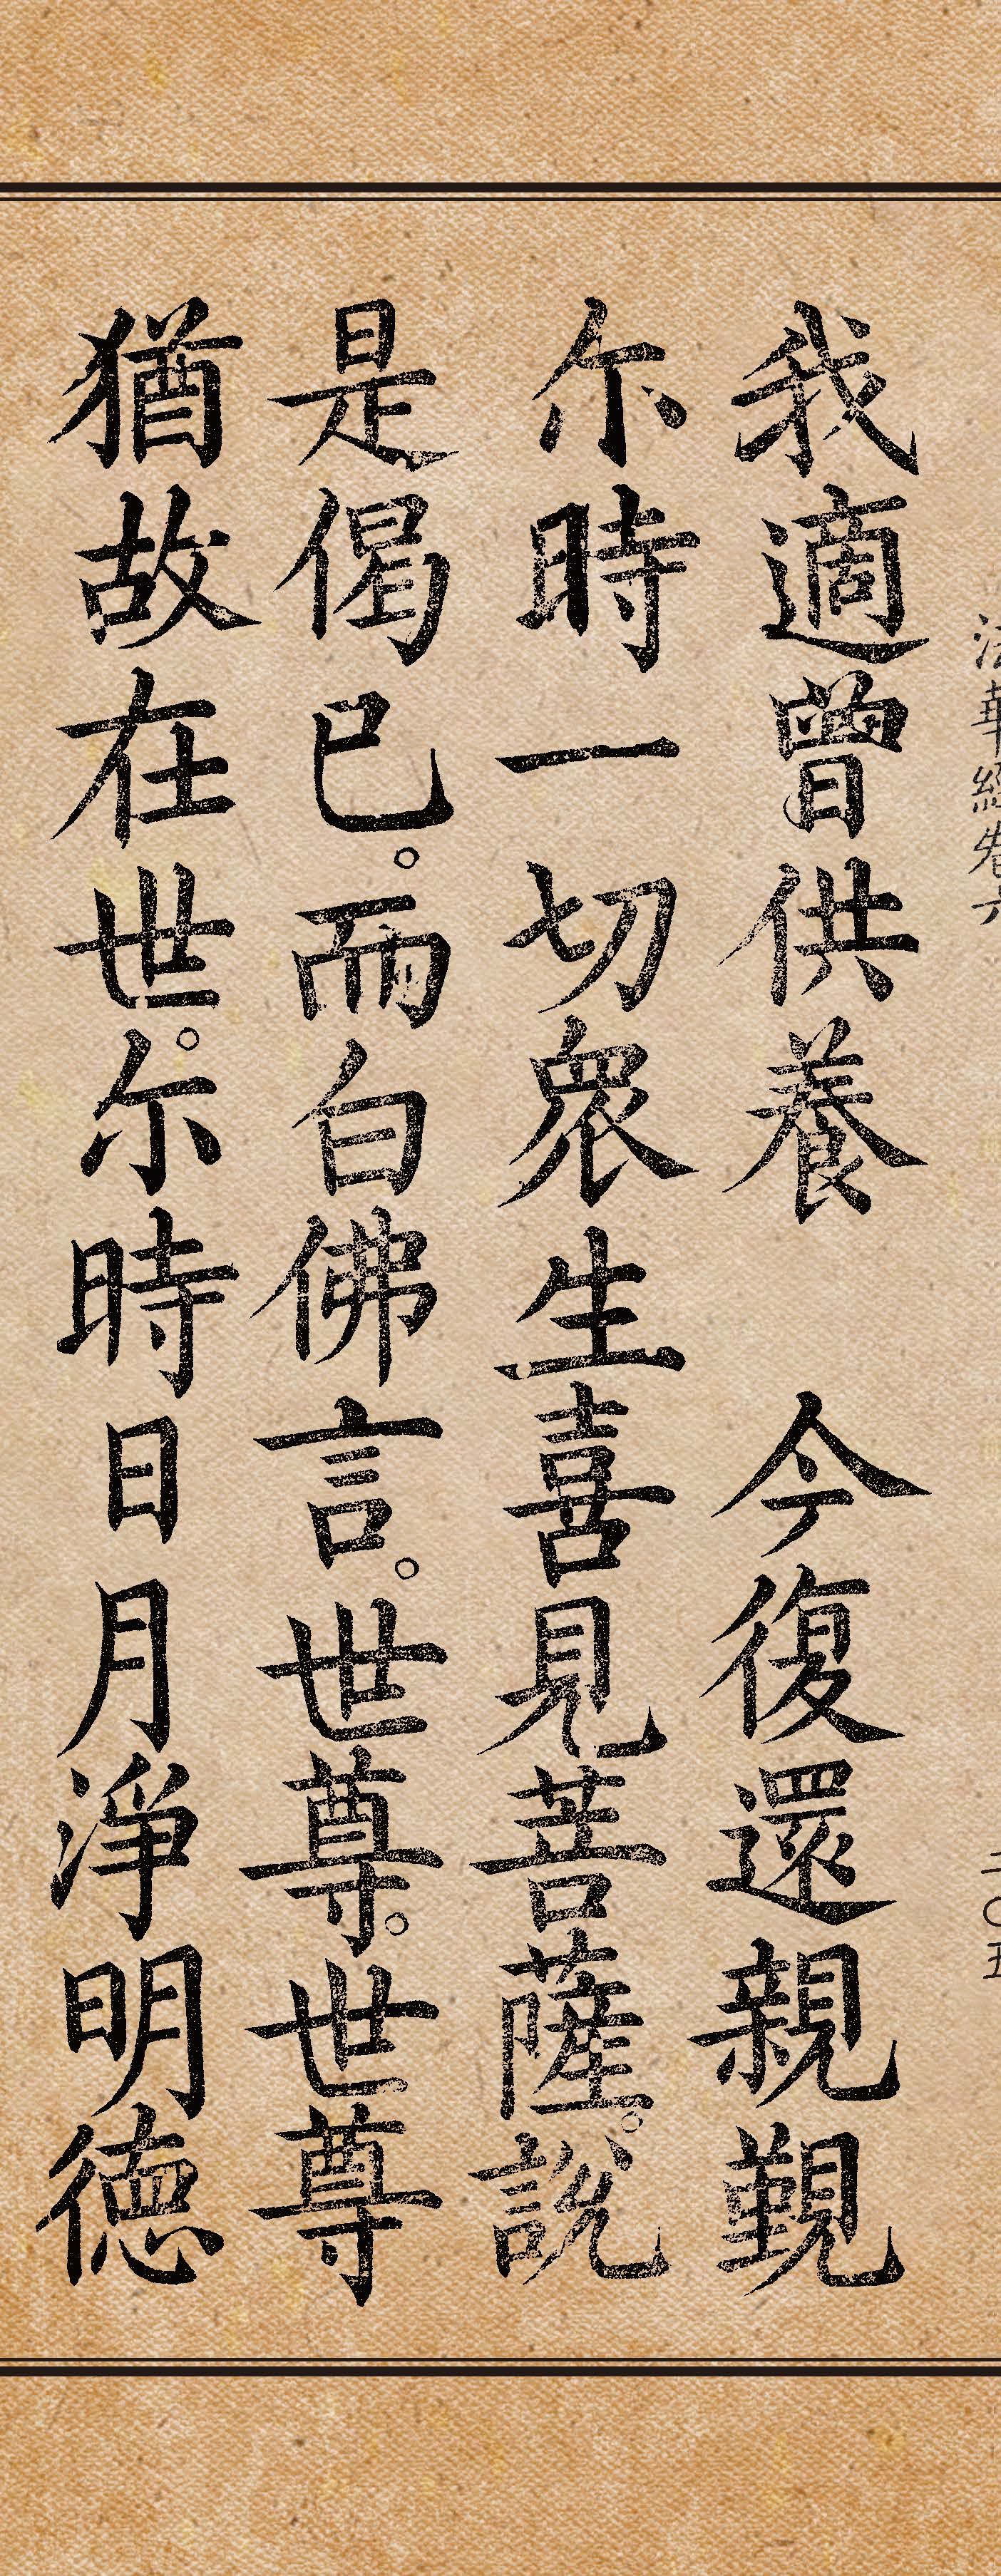 法華經卷六
二〇五
我適曾供養 今復還親覲
尒時一切衆生喜見菩薩。說
是偈已。而白佛言。世尊。世尊
猶故在世。尒時日月淨明德